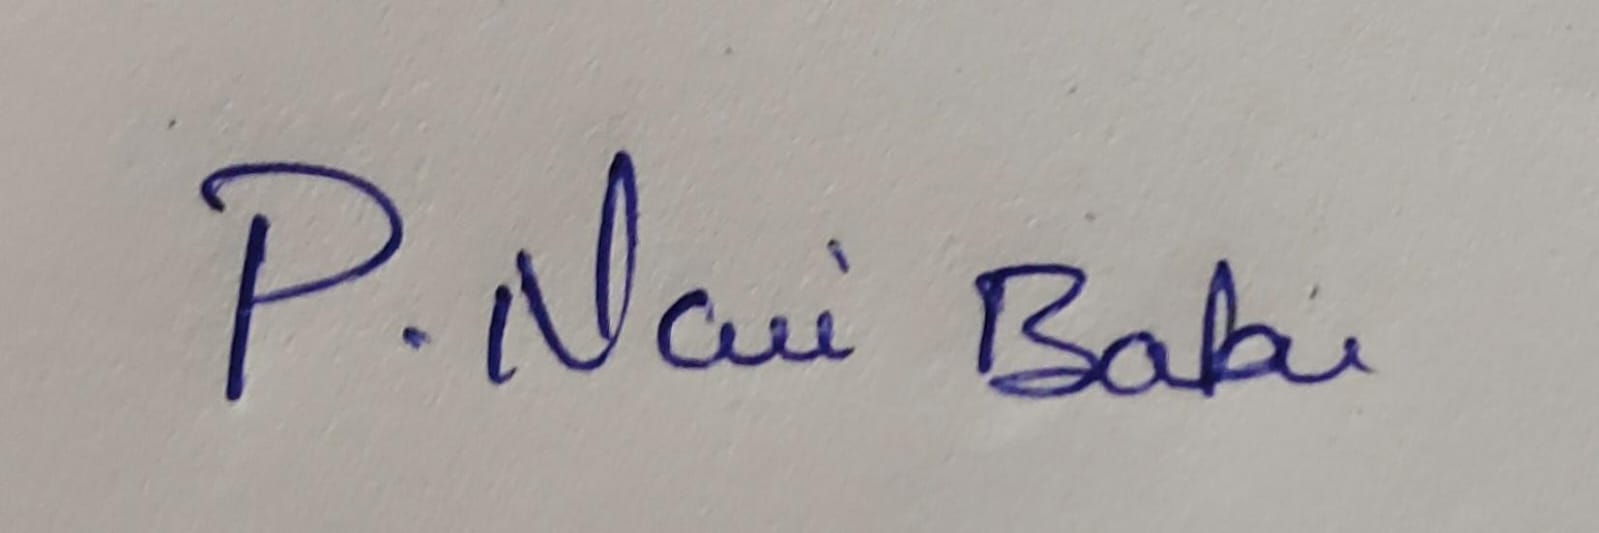 P. Navi Babu